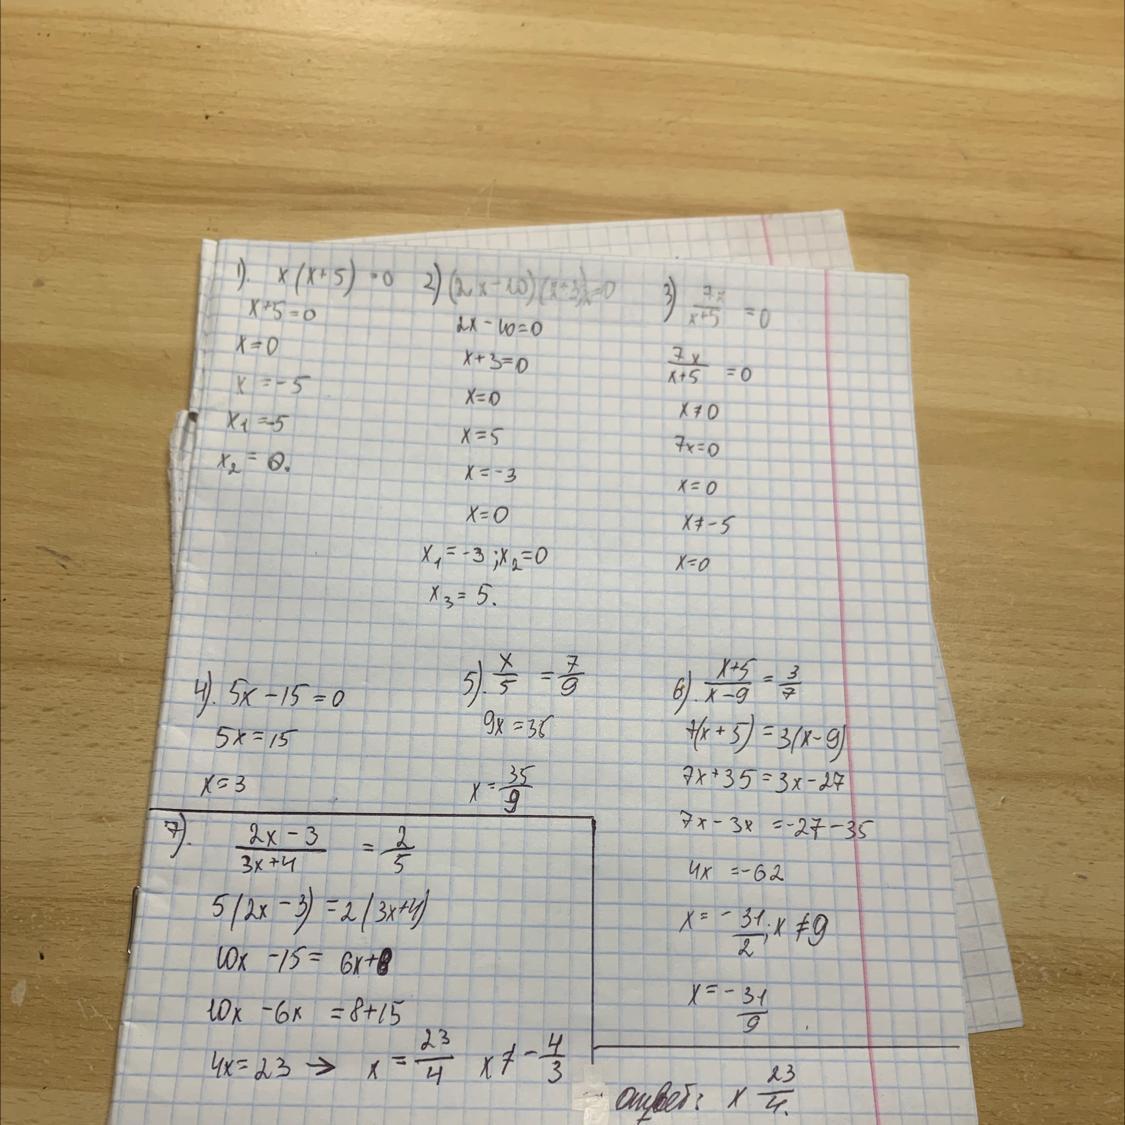 1). x(x+5) = 0
x+5=0
x=0
x = -5
x₁ = -5
x₂ = 0.
2) (2x-10)(x+3)x=0
2x-10=0
x+3=0
x=0
x=5
x=-3
x=0
x₁=-3; x₂=0
x₃=5.
3) 7x/x+5 = 0
7x/x+5 = 0
x≠0
7x=0
x=0
x≠-5
x=0
4). 5x-15=0
5x=15
x=3
5). x/5 = 7/9
9x=36
x=35/9
6). x+5/x-9 = 3/7
7(x+5)=3(x-9)
7x+35=3x-27
7x-3x=-27-35
4x=-62
x=-31/2; x≠9
x=-31/9
7). 2x-3/3x+4 = 2/5
5(2x-3)=2(3x+4)
10x-15=6x+8
10x-6x=8+15
4x=23 → x=23/4 x≠-4/3
ответ: x 23/4.